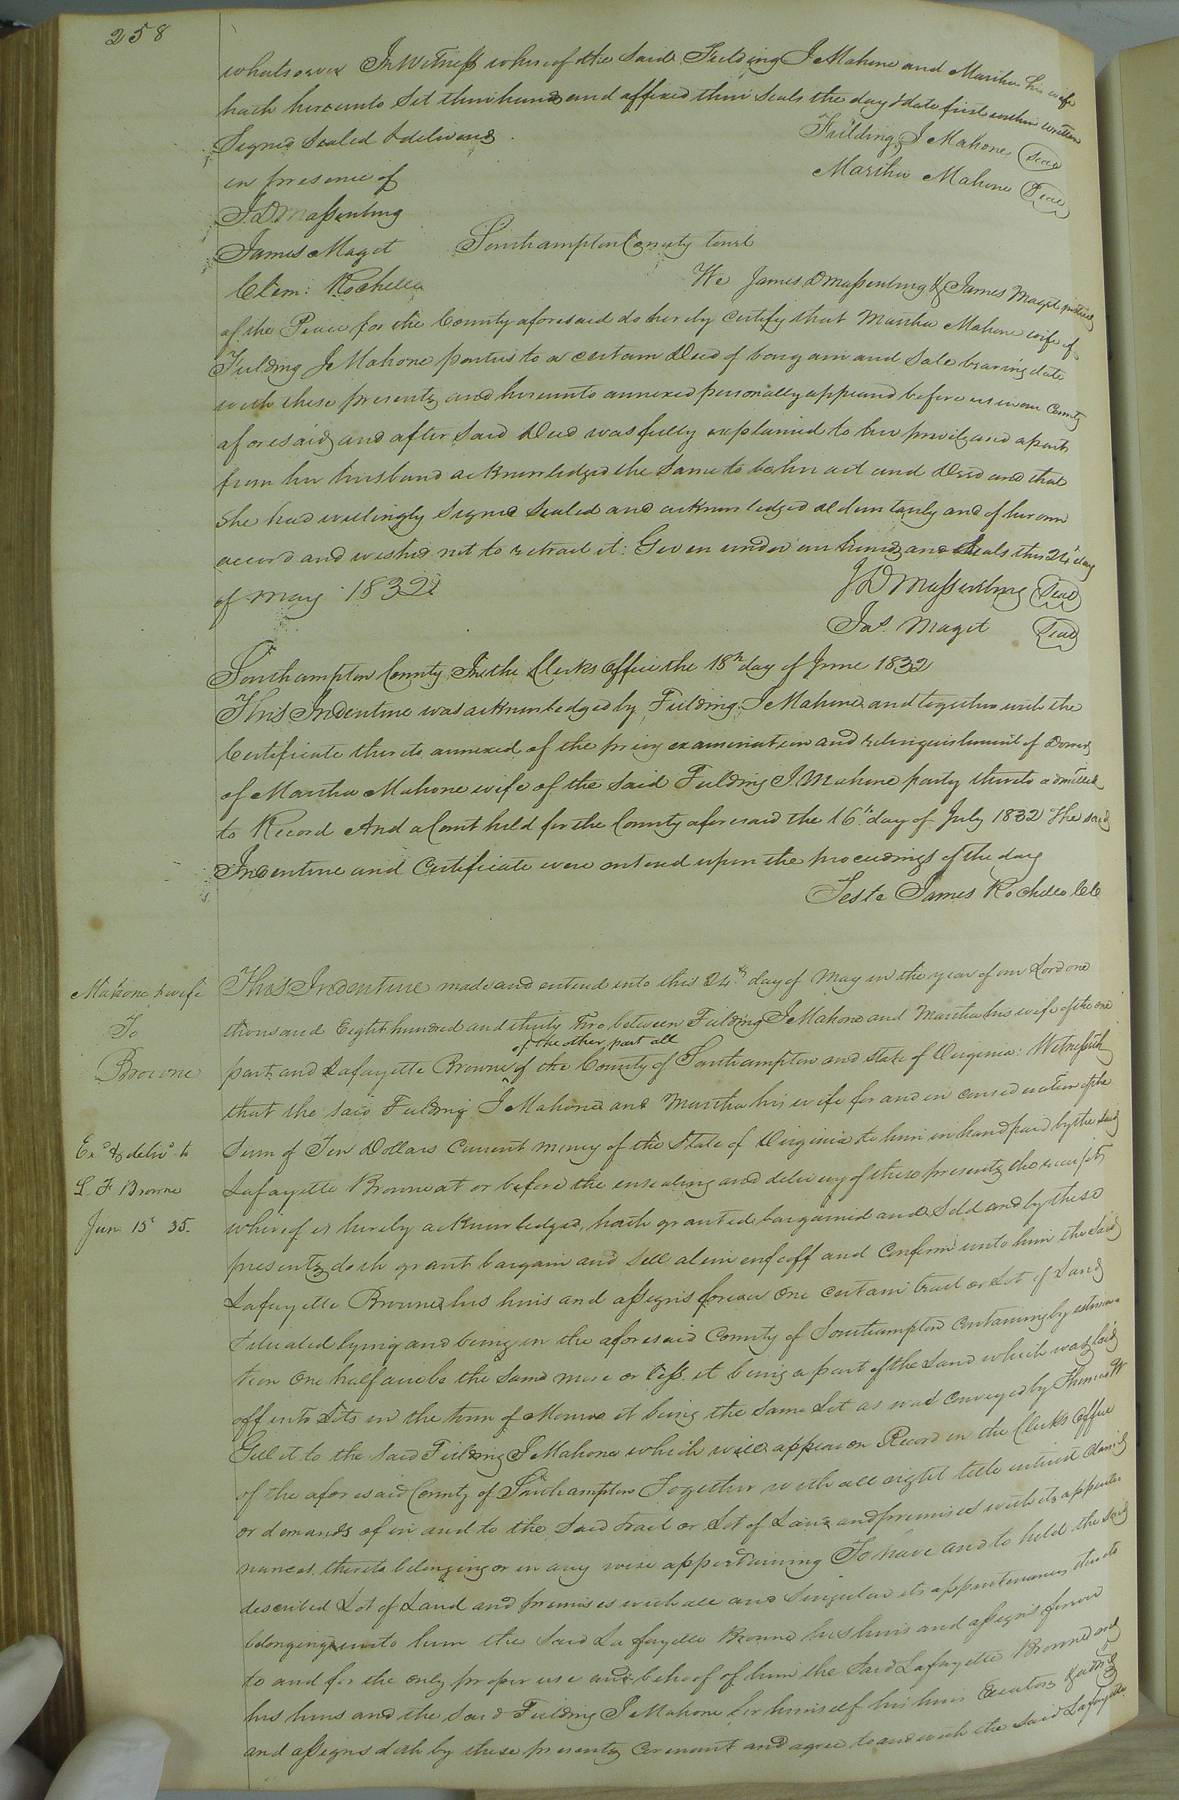 258
whatsoever In Witness whereof the said Feilding J Mahone and Martha his wife
hath hereunto set their hands and affixed their seals the day & date first within written
Signed Sealed & delivered
in presence of
J. D. Massenburg
James Maget
Clem: Rochelle
Feilding J Mahone Seal
Martha Mahone Seal
Southampton County Court
We James D Massenburg & James Maget justices
of the Peace for the County aforesaid do hereby certify that Martha Mahone wife of
Feilding J Mahone parties to a certain Deed of bargain and Sale bearing date
with these presents and hereunto annexed personally appeared before us in our County
aforesaid and after said Deed was fully explained to her privily and apart
from her husband acknowledged the same to be her act and Deed and that
she had willingly signed sealed and acknowledged voluntarily and of her own
accord and wished not to retract it: Given under our hands and seals this 24th day
of May 1832
J D Massenburg Seal
Jas. Maget Seal
Southampton County In the Clerks Office the 18th day of June 1832
This Indenture was acknowledged by Feilding J Mahone and together with the
Certificate thereto annexed of the privy examination and relinquishment of Dower
of Martha Mahone wife of the said Feilding J. Mahone party thereto admitted
to Record And a Court held for the County aforesaid the 16th day of July 1832 The said
Indenture and Certificate were entered upon the proceedings of the day
Teste James Rochelle CC
Mahone & wife
To
Browne
Exd & delivd to
L F Browne
Jun 15th 35.
This Indenture made and entered into this 24th day of May in the year of our Lord one
thousand Eight hundred and thirty Two between Feilding J Mahone and Martha his wife of the one
of the other part all
part and Lafayette Browne of the County of Southampton and state of Virginia: Witnesseth
that the said Feilding J Mahone and Martha his wife for and in consideration of the
Sum of Ten Dollars current money of the State of Virginia to him in hand paid by the said
Lafayette Browne at or before the ensealing and delivery of these presents the receipt
whereof is hereby acknowledged, hath granted bargained and Sold and by these
presents doth grant bargain and sell alien enfeoff and confirm unto him the said
Lafayette Browne his heirs and assigns forever one certain tract or Lot of Land
Situated lying and being in the aforesaid County of Southampton Containing by estima
tion one half acre be the same more or less it being a part of the Land which was laid
off into Lots in the town of Monroe it being the same Lot as was conveyed by Thomas W
to the said Feilding J Mahone which will appear on Record in the Clerks Office
of the aforesaid County of Southampton Together with all right title interest claim
or demands of in and to the said tract or Lot of Land and premises with its appurte
nances thereto belonging or in any wise appertaining To have and to hold the said
described Lot of Land and premises with all and Singular its appurtenances thereto
belonging unto him the said Lafayette Browne his heirs and assigns forever
to and for the only proper use and behoof of him the said Lafayette Browne and
his heirs and the said Feilding J Mahone for himself his heirs Executors & admrs
and assigns doth by these presents covenant and agree to and with the said Lafayette